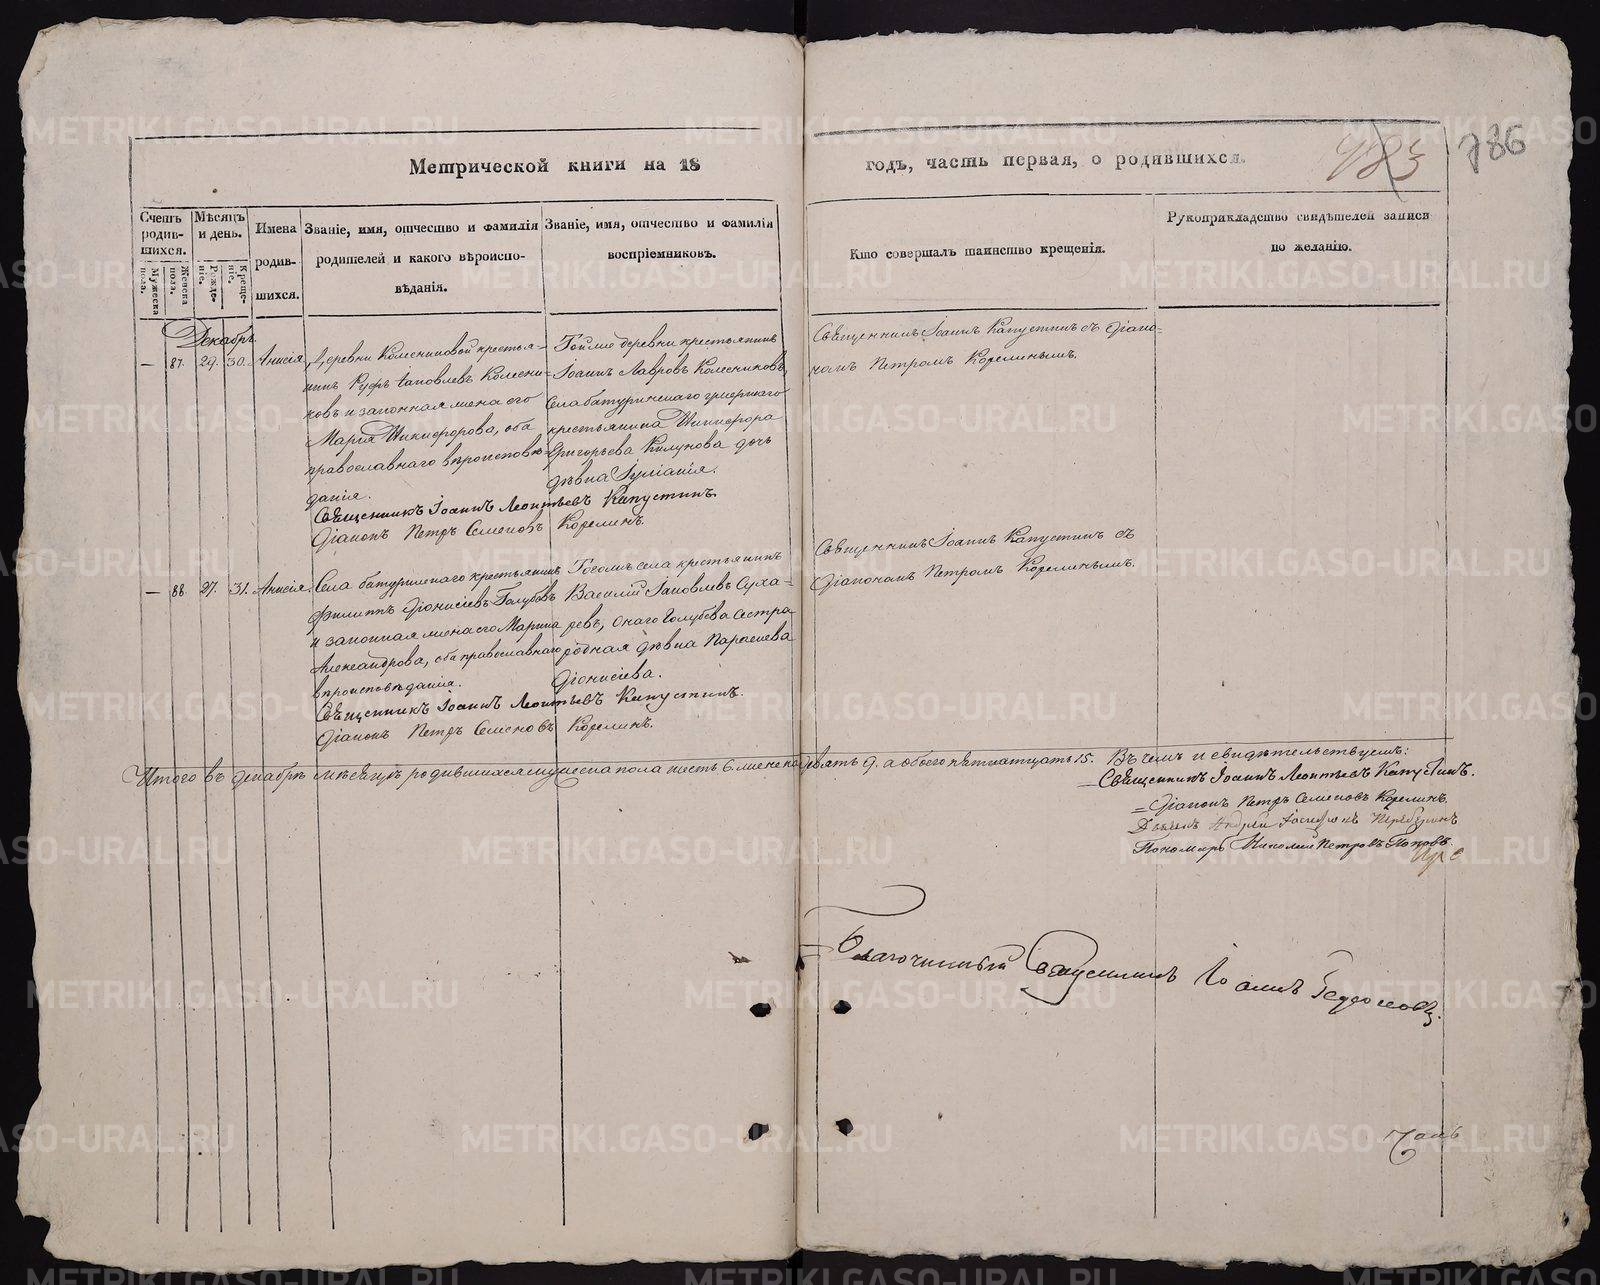 Метрической книги на 18 годъ, часть первая, о родившихся.
483
786
Счетъ родив-
шихся.
Мужеска пола.
Женска пола.
Мѣсяцъ и день.
Рожде-
ніе.
Креще-
ніе.
Имена
родив-
шихся.
Званіе, имя, отчество и фамилія
родителей и какого вѣроиспо-
вѣданія.
Званіе, имя, отчество и фамилія
воспріемниковъ.
Кто совершалъ таинство крещенія.
Рукоприкладство свидѣтелей записи
по желанію.
Декабрь
— 87. 29. 30. Анисія
Деревни Колесниковой крестья-
нинъ Руфъ Іаковлевъ Колесни-
ковъ и законная жена его
Марія Никифорова, оба
православнаго вѣроисповѣ-
данія.
Тойже деревни крестьянинъ
Іоаннъ Лавровъ Колесниковъ,
села батуринскаго
крестьянина Никифора
Григорьева дочь
дѣвка Іуліанія.
Священникъ Іоаннъ Капустинъ съ Діако-
номъ Петромъ Корелинымъ.
Священникъ Іоаннъ Леонтьевъ Капустинъ.
Діаконъ Петръ Семеновъ Корелинъ.
— 88. 27. 31. Анисія.
Села батуринскаго крестьянинъ
Филиппъ Діонисіевъ Голубевъ
и законная жена его Марина
Александрова, оба православнаго
вѣроисповѣданія.
Тогожъ села крестьянинъ
Василій Іаковлевъ Суха-
ревъ, онаго Голубева сестра
родная дѣвка Параскева
Діонисіева.
Священникъ Іоаннъ Капустинъ съ
Діакономъ Петромъ Корелинымъ.
Священникъ Іоаннъ Леонтьевъ Капустинъ.
Діаконъ Петръ Семеновъ Корелинъ.
Итого въ декабрѣ мѣсяцѣ родившихся мужеска пола шесть 6. женска девять 9. а обоего пятнатцать 15. Въ чемъ и свидѣтельствуемъ:
Священникъ Іоаннъ Леонтьевъ Капустинъ.
Діаконъ Петръ Семеновъ Корелинъ.
Дьячекъ Андрей
Пономарь Николай Петровъ Поповъ.
Благочинный Священникъ Іоаннъ
METRIKI.GASO-URAL.RU